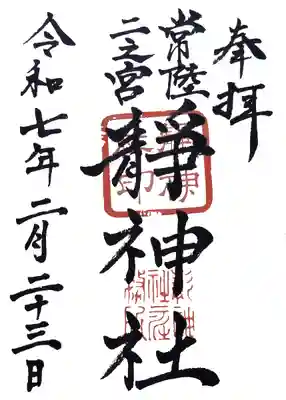 奉拝
常陸
二之宮
靜神社
令和七年二月二十三日